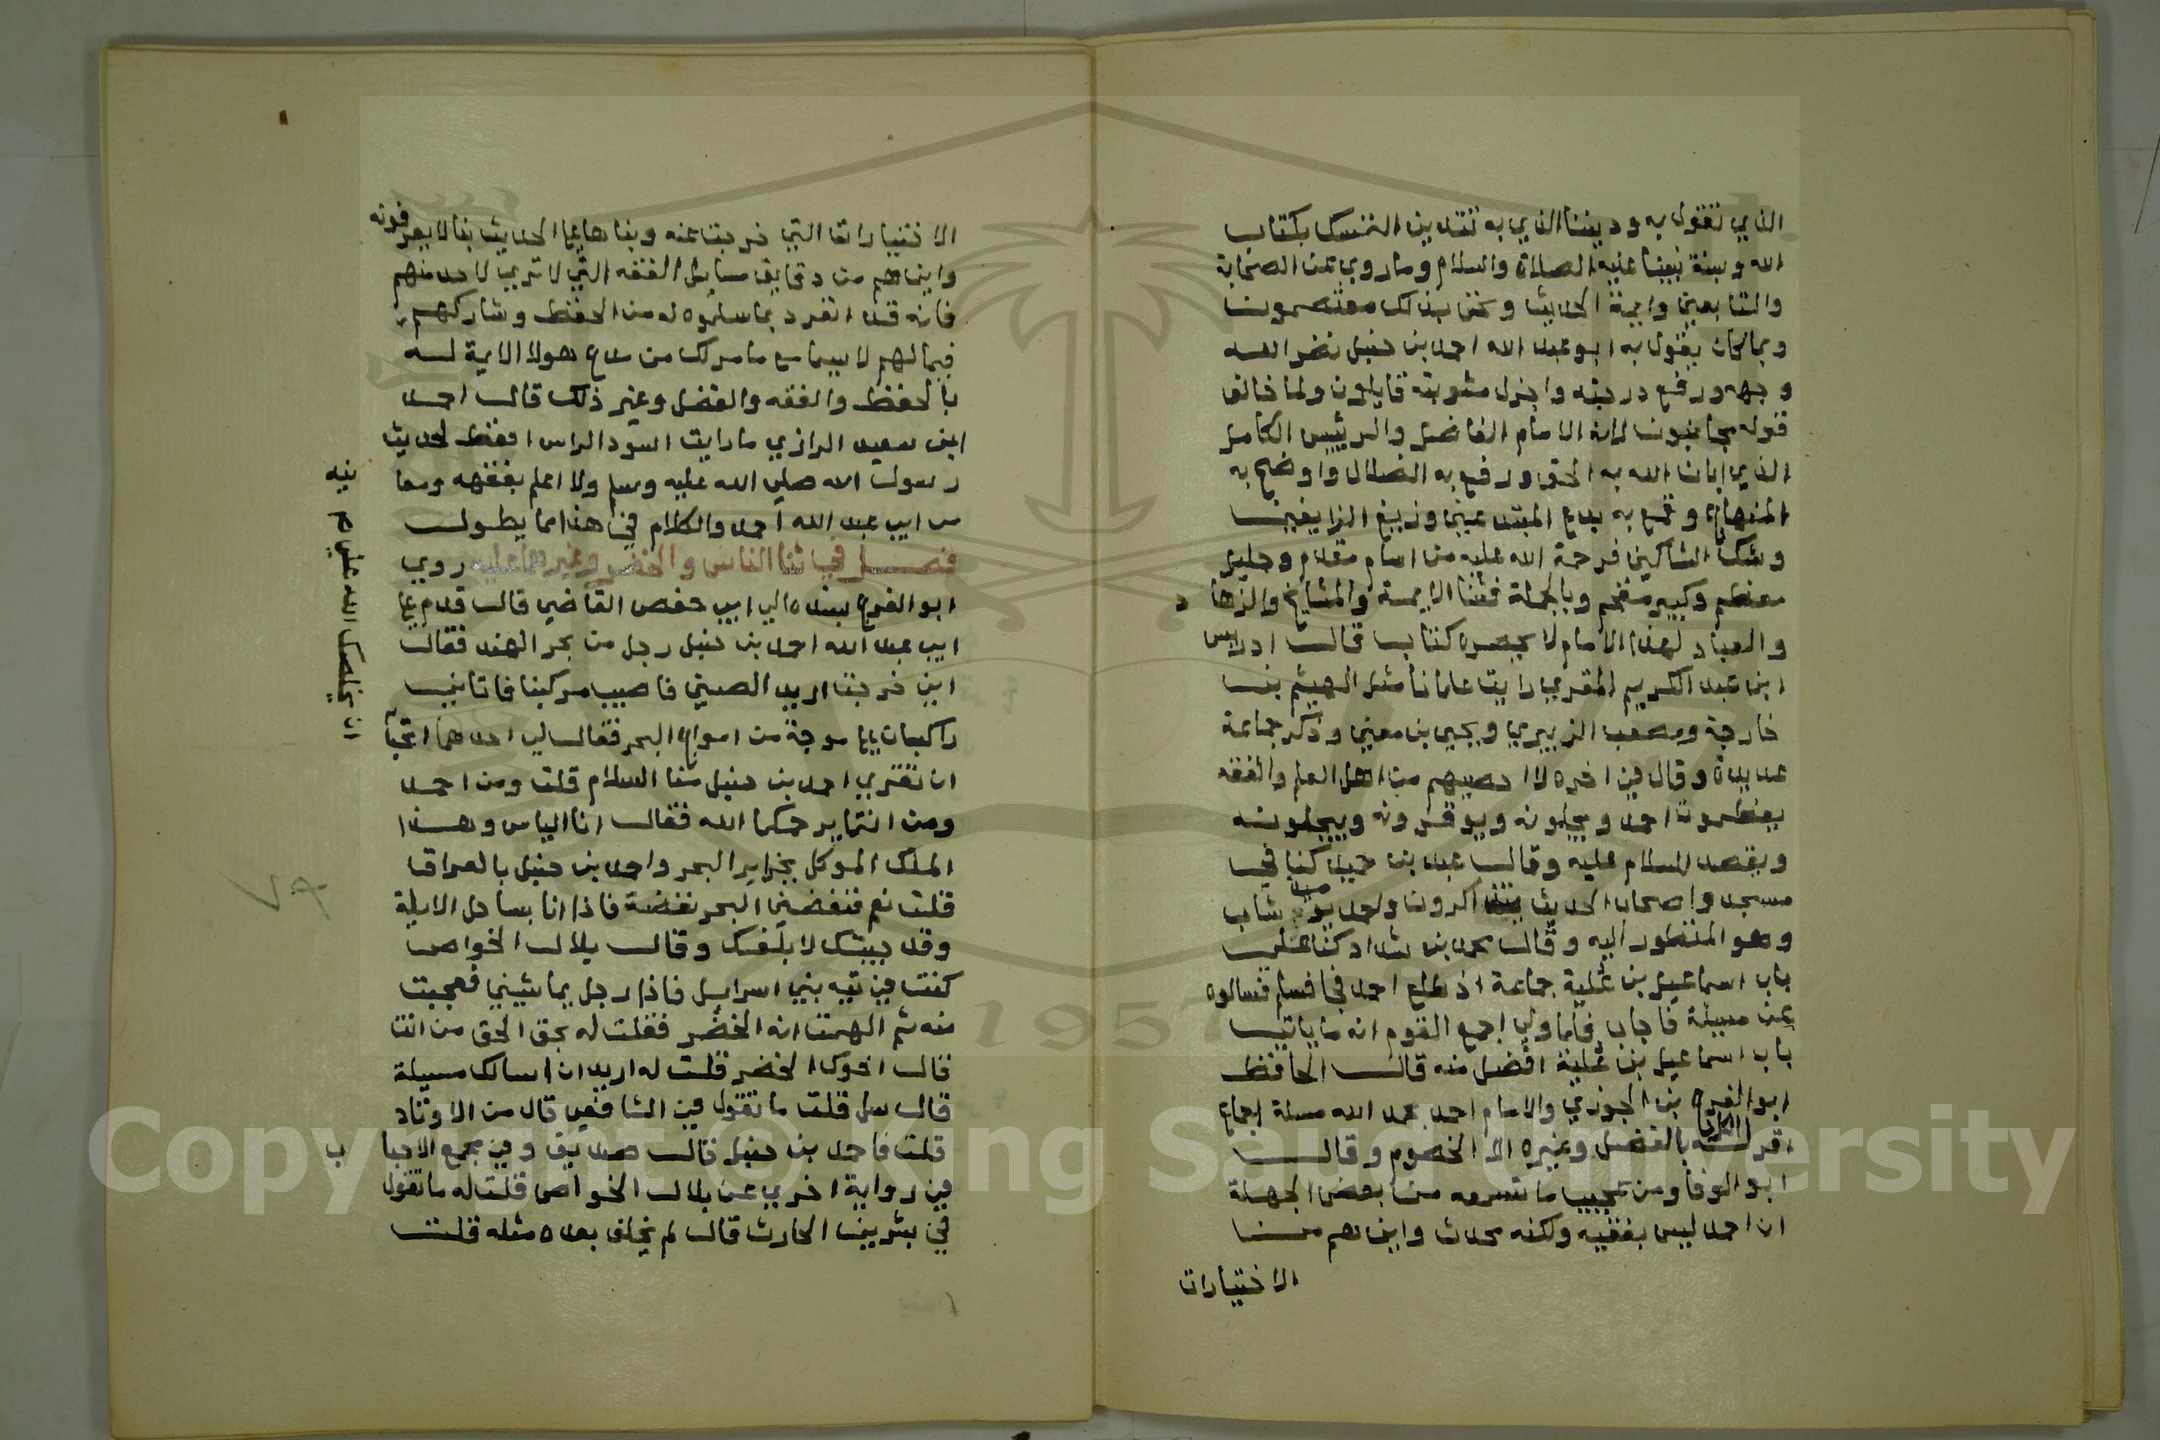 الذي نقول به وديننا الذي به نتدين التمسك بكتاب
الله وسنة نبينا عليه الصلاة والسلام وما روي عن الصحابة
والتابعين وايمة الحديث ونحن بذلك معتصمون
وبما كان يقول به ابو عبد الله احمد بن حنبل نضر الله
وجهه ورفع درجته واجزل مثوبته قايلون ولما خالف
قوله مجانبون لانه الامام الفاضل والرئيس الكامل
الذي ابان الله به الحق ورفع به الضلال واوضح به
المنهاج وقمع به بدع المبتدعين وزيغ الزايغين
وشك الشاكين فرحمة الله عليه من امام مقدم وجليل
معظم وكبير مفخم وبالجملة فثنا الايمة والمشايخ والزهاد
والعباد لهذا الامام لا يحصره كتاب قال ادريس
ابن عبد الكريم المقري رايت علمانا مثل الهيثم بن
خارجة ومصعب الزبيري ويحيى بن معين وذكر جماعة
عديدة وقال في اخره لا احصيهم من اهل العلم والفقه
يعظمون احمد ويجلونه ويوقرونه ويبجلونه
ويقصد للسلام عليه وقال عبد بن حميد كنا في
مسجد واصحاب الحديث يتذاكرون واحمد يومئذ شاب
وهو المنظور اليه وقال محمد بن شداد كنا على
باب اسماعيل بن علية جماعة اذ طلع احمد فجا فسلم فسالوه
عن مسيلة فاجاب فلما ولى اجمع القوم انه ما ياتي
باب اسماعيل بن علية افضل منه قال الحافظ
ابو الفرج بن الجوزي والامام احمد بحمد الله مسلة اجماع
اقر له الكل بالفضل وغيره الا الخصوم وقال
ابو الوفا ومن عجيب ما تسمعه من بعض الجهلة
ان احمد ليس بفقيه ولكنه محدث واين هم من
الاختيارات
الاختيارات التي خرجت عنه وبناها على الحديث بنا لا يعرفونه
واين هم من دقايق مسايل الفقه التي لا ترى لاحد منهم
فانه قد انفرد بما سلموه له من الحفظ وشاركهم
فيما لهم لا سيما مع ما مر لك من مدح هولا الايمة له
بالحفظ والفقه والفضل وغير ذلك قال احمد
ابن سعيد الرازي ما رايت اسود الراس احفظ لحديث
رسول الله صلى الله عليه وسلم ولا اعلم بفقهه ومعا
نيه
من ابي عبد الله احمد والكلام في هذا مما يطول
فصل في ثنا الناس والخضر وغيرهما عليه روي
ابو الفرج بسنده الى ابي حفص القاضي قال قدم على
ابي عبد الله احمد بن حنبل رجل من بحر الهند فقال
اني خرجت اريد الصين فاصيب مركبنا فاتاني
راكبان على موجة من امواج البحر فقال لي احدهما اتحب
ان يخلصك الله على
ان تقري احمد بن حنبل منا السلام قلت ومن احمد
ومن انتما يرحمكما الله فقال انا الياس وهذا
الملك الموكل بجزاير البحر واحمد بن حنبل بالعراق
قلت نعم فنفضني البحر نفضة فاذا انا بساحل الابلة
وقد جيتك لابلغك وقال بلال الخواص
كنت في تيه بني اسرايل فاذا رجل يماشيني فعجبت
منه ثم الهمت انه الخضر فقلت له بحق الحق من انت
قال اخوك الخضر قلت له اريد ان اسالك مسيلة
قال سل قلت ما تقول في الشافعي قال من الاوتاد
قلت فاحمد بن حنبل قال صديق وفي مجمع الاحباب
في رواية اخرى عن بلال الخواص قلت له ما تقول
في بشر بن الحارث قال لم يخلف بعده مثله قلت
Copyright © King Saud University
1957